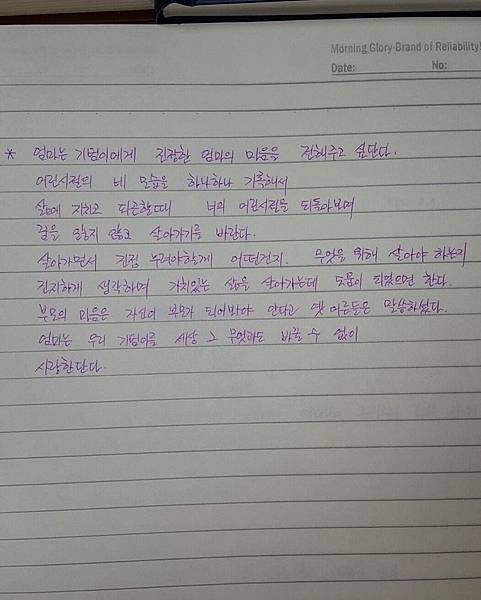 Morning Glory-Brand of Reliability!
Date: No:
* 엄마는 기렁이에게 진정한 엄마의 마음을 전해주고 싶단다.
어린시절의 네 모습을 하나하나 기록해서
삶에 지치고 피곤할때 너의 어린시절을 되돌아보며
길을 잃지 않고 살아가기를 바란다.
살아가면서 진정 누려야할게 어떤건지. 무엇을 위해 살아야 하는지
진지하게 생각하며 가치있는 삶을 살아가는데 도움이 되었으면 한다.
부모의 마음은 자신이 부모가 되어봐야 안다고 옛 어른들은 말씀하셨다.
엄마는 우리 기렁이를 세상 그 무엇과도 바꿀 수 없이
사랑한단다.